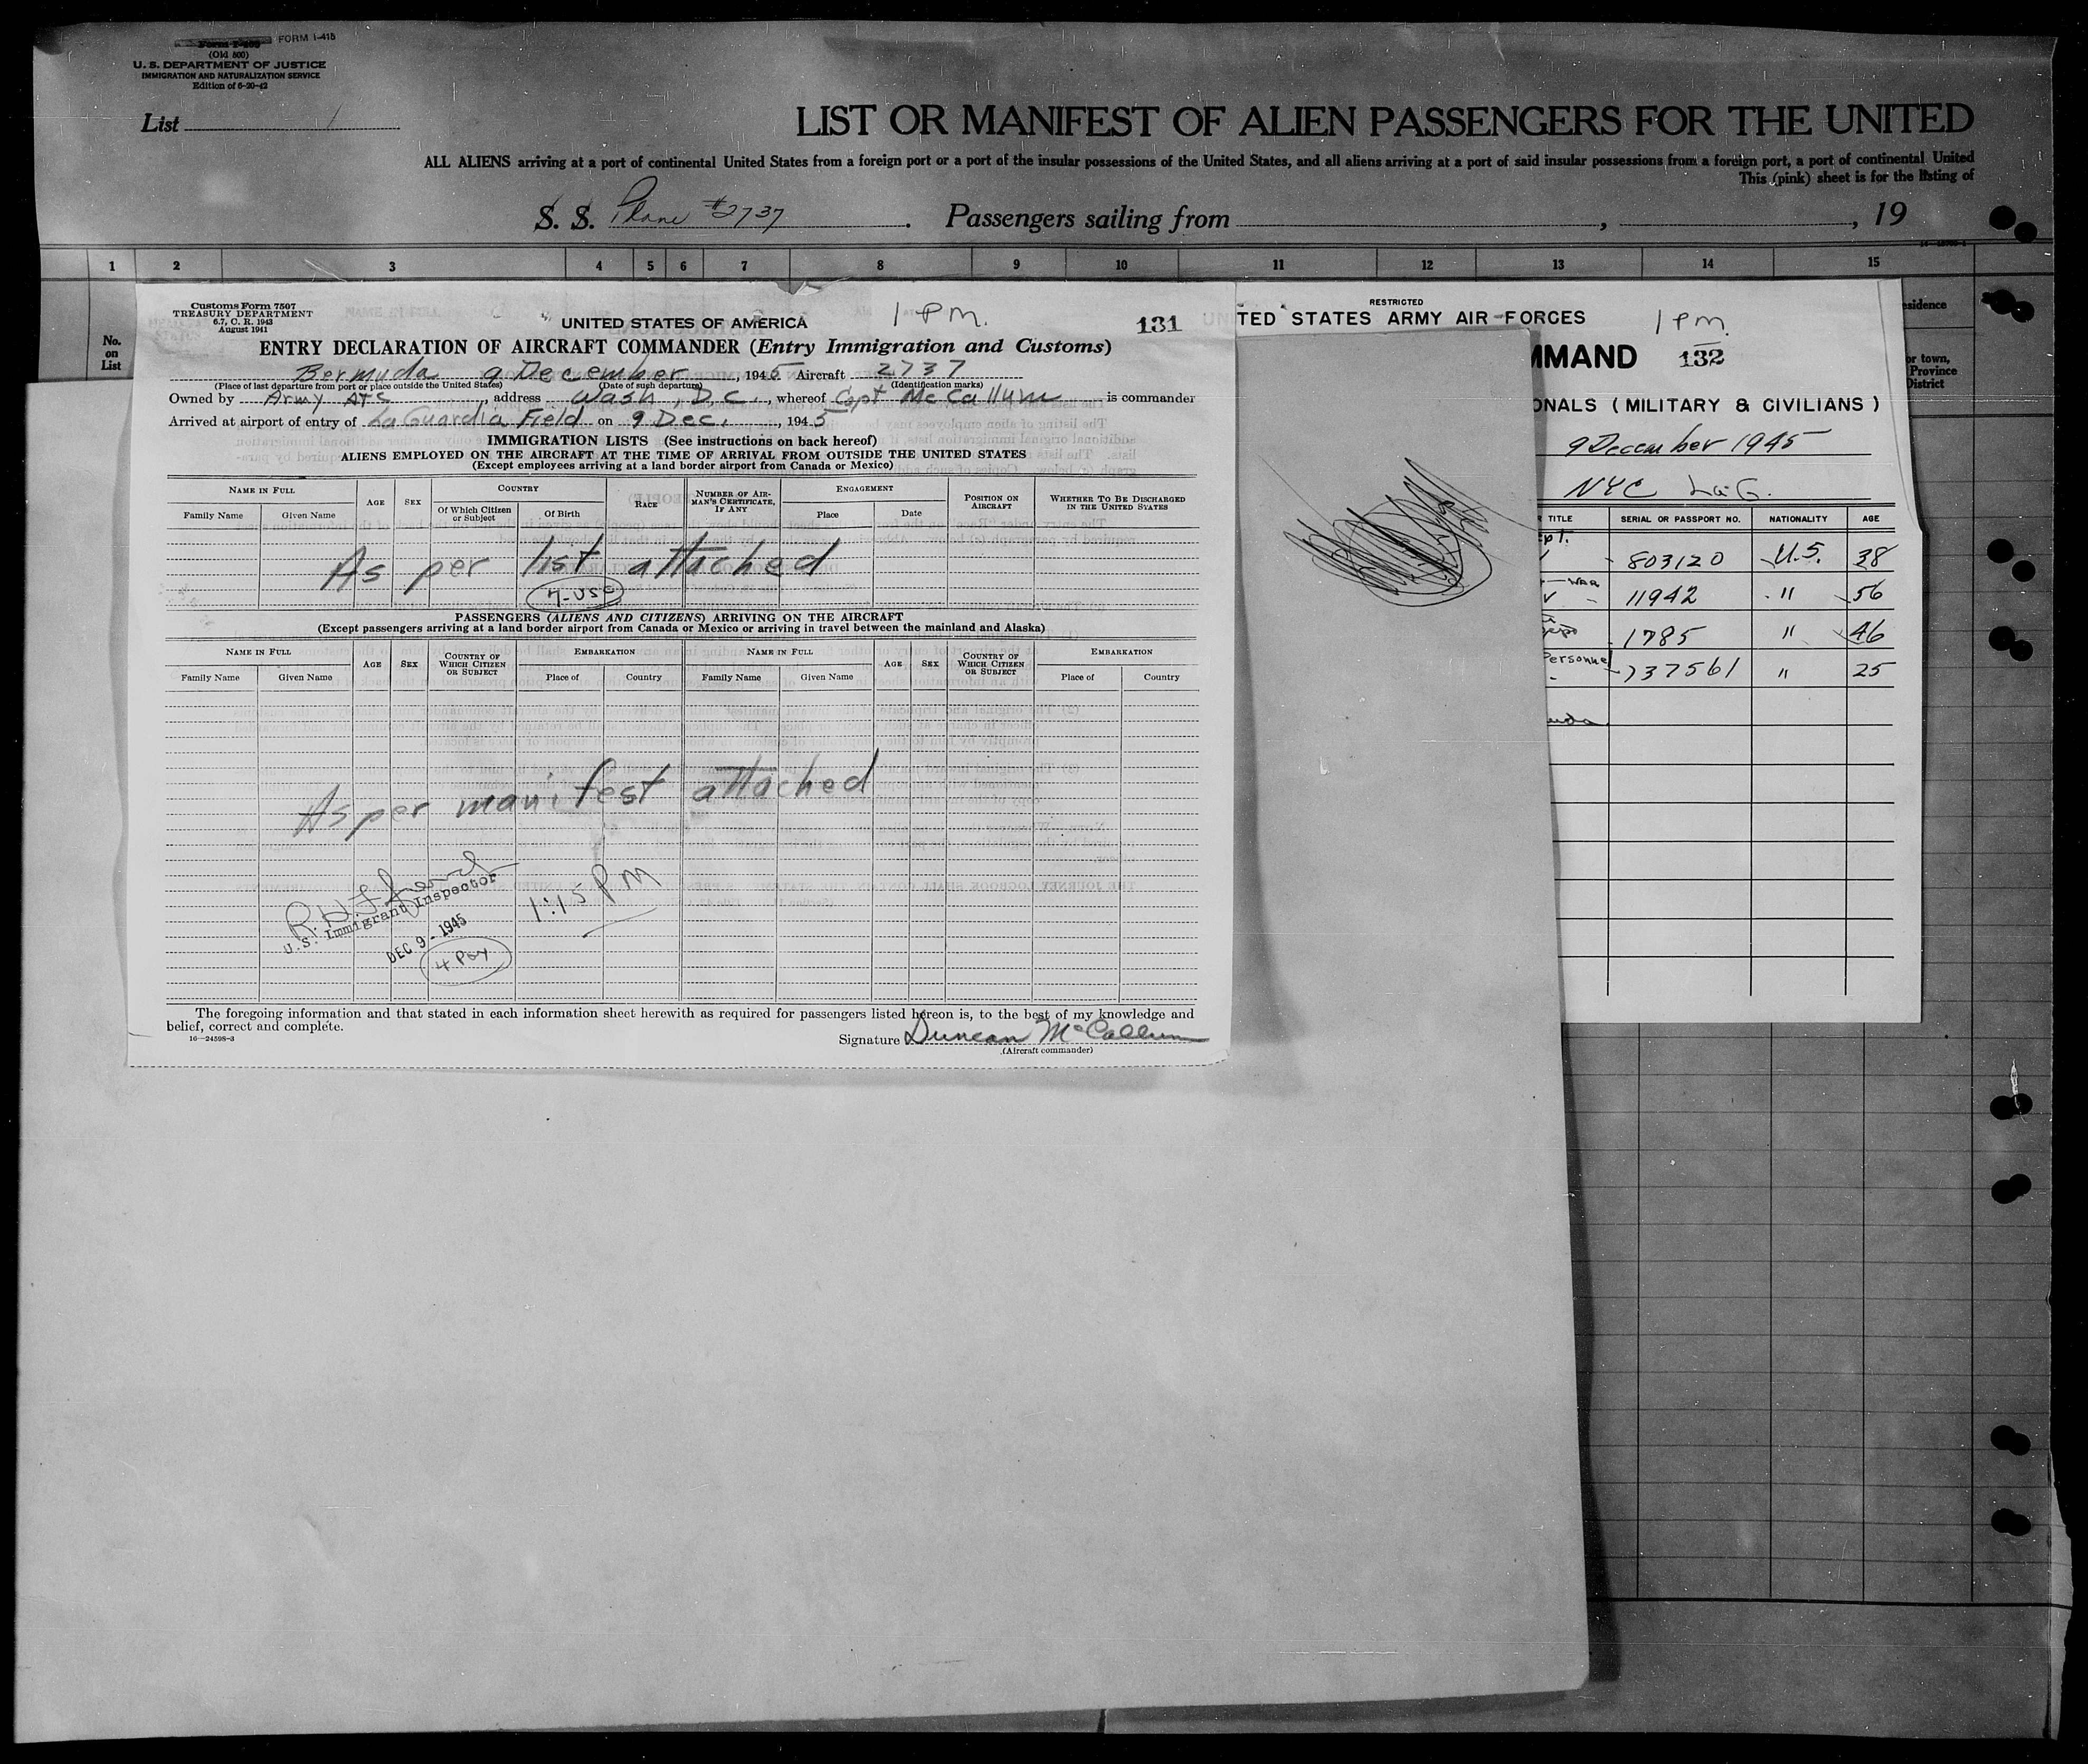 FORM I-415
(Old 500)
U. S. DEPARTMENT OF JUSTICE
IMMIGRATION AND NATURALIZATION SERVICE
Edition of 6-20-42
List 1
LIST OR MANIFEST OF ALIEN PASSENGERS FOR THE UNITED
ALL ALIENS arriving at a port of continental United States from a foreign port or a port of the insular possessions of the United States, and all aliens arriving at a port of said insular possessions from a foreign port, a port of continental United
This (pink) sheet is for the listing of
S. S. Plane #2737. Passengers sailing from , , 19
1 2 3 4 5 6 7 8 9 10 11 12 13 14 15
No.
on
List
esidence
or town,
Province
District
Customs Form 7507
TREASURY DEPARTMENT
6.7, C. R. 1943
August 1941
UNITED STATES OF AMERICA
1 PM.
131
ENTRY DECLARATION OF AIRCRAFT COMMANDER (Entry Immigration and Customs)
Bermuda 9 December, 1945 Aircraft 2737
(Place of last departure from port or place outside the United States) (Date of such departure) (Identification marks)
Owned by Army ATC, address Wash, D.C., whereof Capt McCallum is commander
Arrived at airport of entry of LaGuardia Field on 9 Dec., 1945
IMMIGRATION LISTS (See instructions on back hereof)
ALIENS EMPLOYED ON THE AIRCRAFT AT THE TIME OF ARRIVAL FROM OUTSIDE THE UNITED STATES
(Except employees arriving at a land border airport from Canada or Mexico)
NAME IN FULL AGE SEX COUNTRY RACE NUMBER OF AIRMAN'S CERTIFICATE, IF ANY ENGAGEMENT POSITION ON AIRCRAFT WHETHER TO BE DISCHARGED IN THE UNITED STATES
Family Name Given Name Of Which Citizen or Subject Of Birth Place Date
As per list attached
7-USC
PASSENGERS (ALIENS AND CITIZENS) ARRIVING ON THE AIRCRAFT
(Except passengers arriving at a land border airport from Canada or Mexico or arriving in travel between the mainland and Alaska)
NAME IN FULL AGE SEX COUNTRY OF WHICH CITIZEN OR SUBJECT EMBARKATION NAME IN FULL AGE SEX COUNTRY OF WHICH CITIZEN OR SUBJECT EMBARKATION
Family Name Given Name Place of Country Family Name Given Name Place of Country
As per manifest attached
U.S. Immigrant Inspector
DEC 9 - 1945
1:15 PM
The foregoing information and that stated in each information sheet herewith as required for passengers listed hereon is, to the best of my knowledge and
belief, correct and complete.
16—24598-3
Signature Duncan McCallum
(Aircraft commander)
RESTRICTED
TED STATES ARMY AIR FORCES
1 pm.
MMAND 132
ONALS (MILITARY & CIVILIANS)
9 December 1945
NYC La G.
TITLE SERIAL OR PASSPORT NO. NATIONALITY AGE
803120 U.S. 38
11942 " 56
1785 " 46
Personnel 737561 " 25